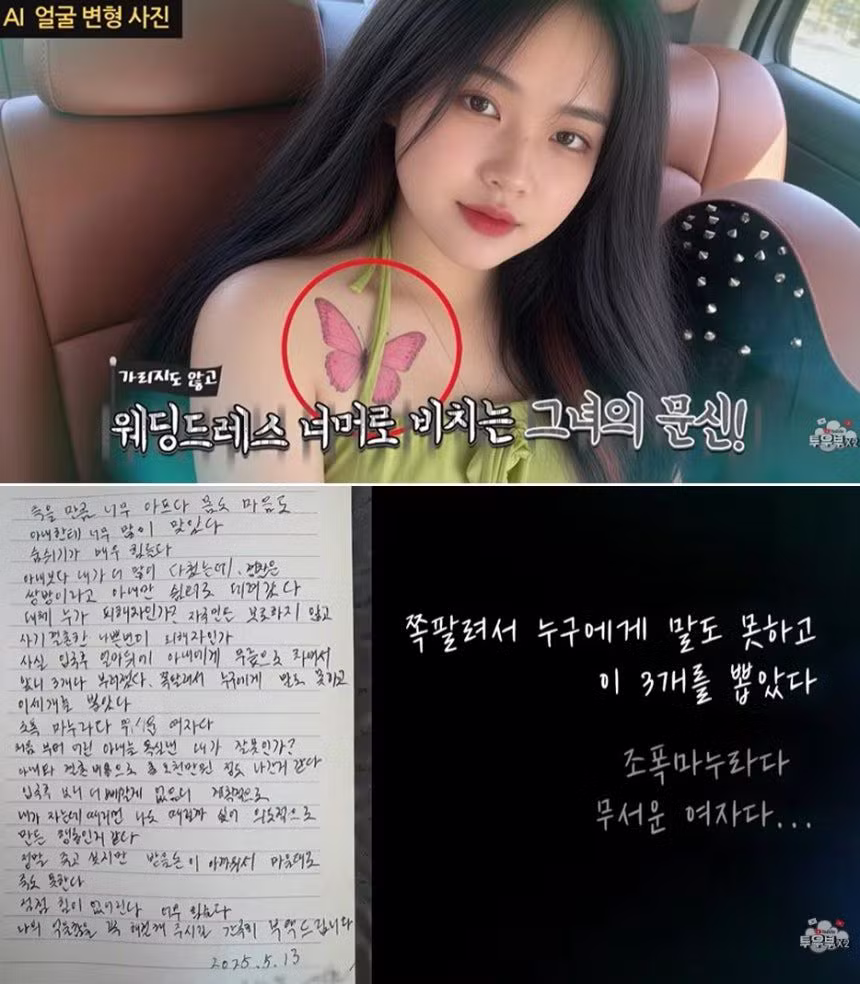 AI 얼굴 변형 사진
가리지도 않고
웨딩드레스 너머로 비치는 그녀의 문신!
투우부X2
죽을 만큼 너무 아프다 몸도 마음도
아내한테 너무 많이 맞았다
숨쉬기가 매우 힘들다
아내보다 내가 더 많이 다쳤는데, 경찰은
쌍방이라고 아내만 쉼터로 데려갔다
대체 누가 피해자인가? 자국민은 보호하지 않고
사기 결혼한 나쁜년이 피해자인가
사실 입국후 얼마뒤에 아내에게 무릎으로 차여서
앞니 3개나 부러졌다. 쪽팔려서 누구에게 말도 못하고
이 세개를 뽑았다
조폭 마누라다 무서운 여자다
처음 부터 이런 아내를 내가 잘못인가?
아내와 결혼비용으로 총 오천만원 정도 나간거 같다
입국후 보니 더 계획적으로
내가 자는데 때리면 나도 때릴까 싶어 의도적으로
만든 행동인거 같다
정말 죽고 싶지만 이 아까워서 마음대로
죽도 못한다
점점 힘이 없어진다 너무 힘들다
나의 억울함을 꼭 해결해 주시길 간곡히 부탁드립니다
2025.5.13
쪽팔려서 누구에게 말도 못하고
이 3개를 뽑았다
조폭마누라다
무서운 여자다...
투우부X2